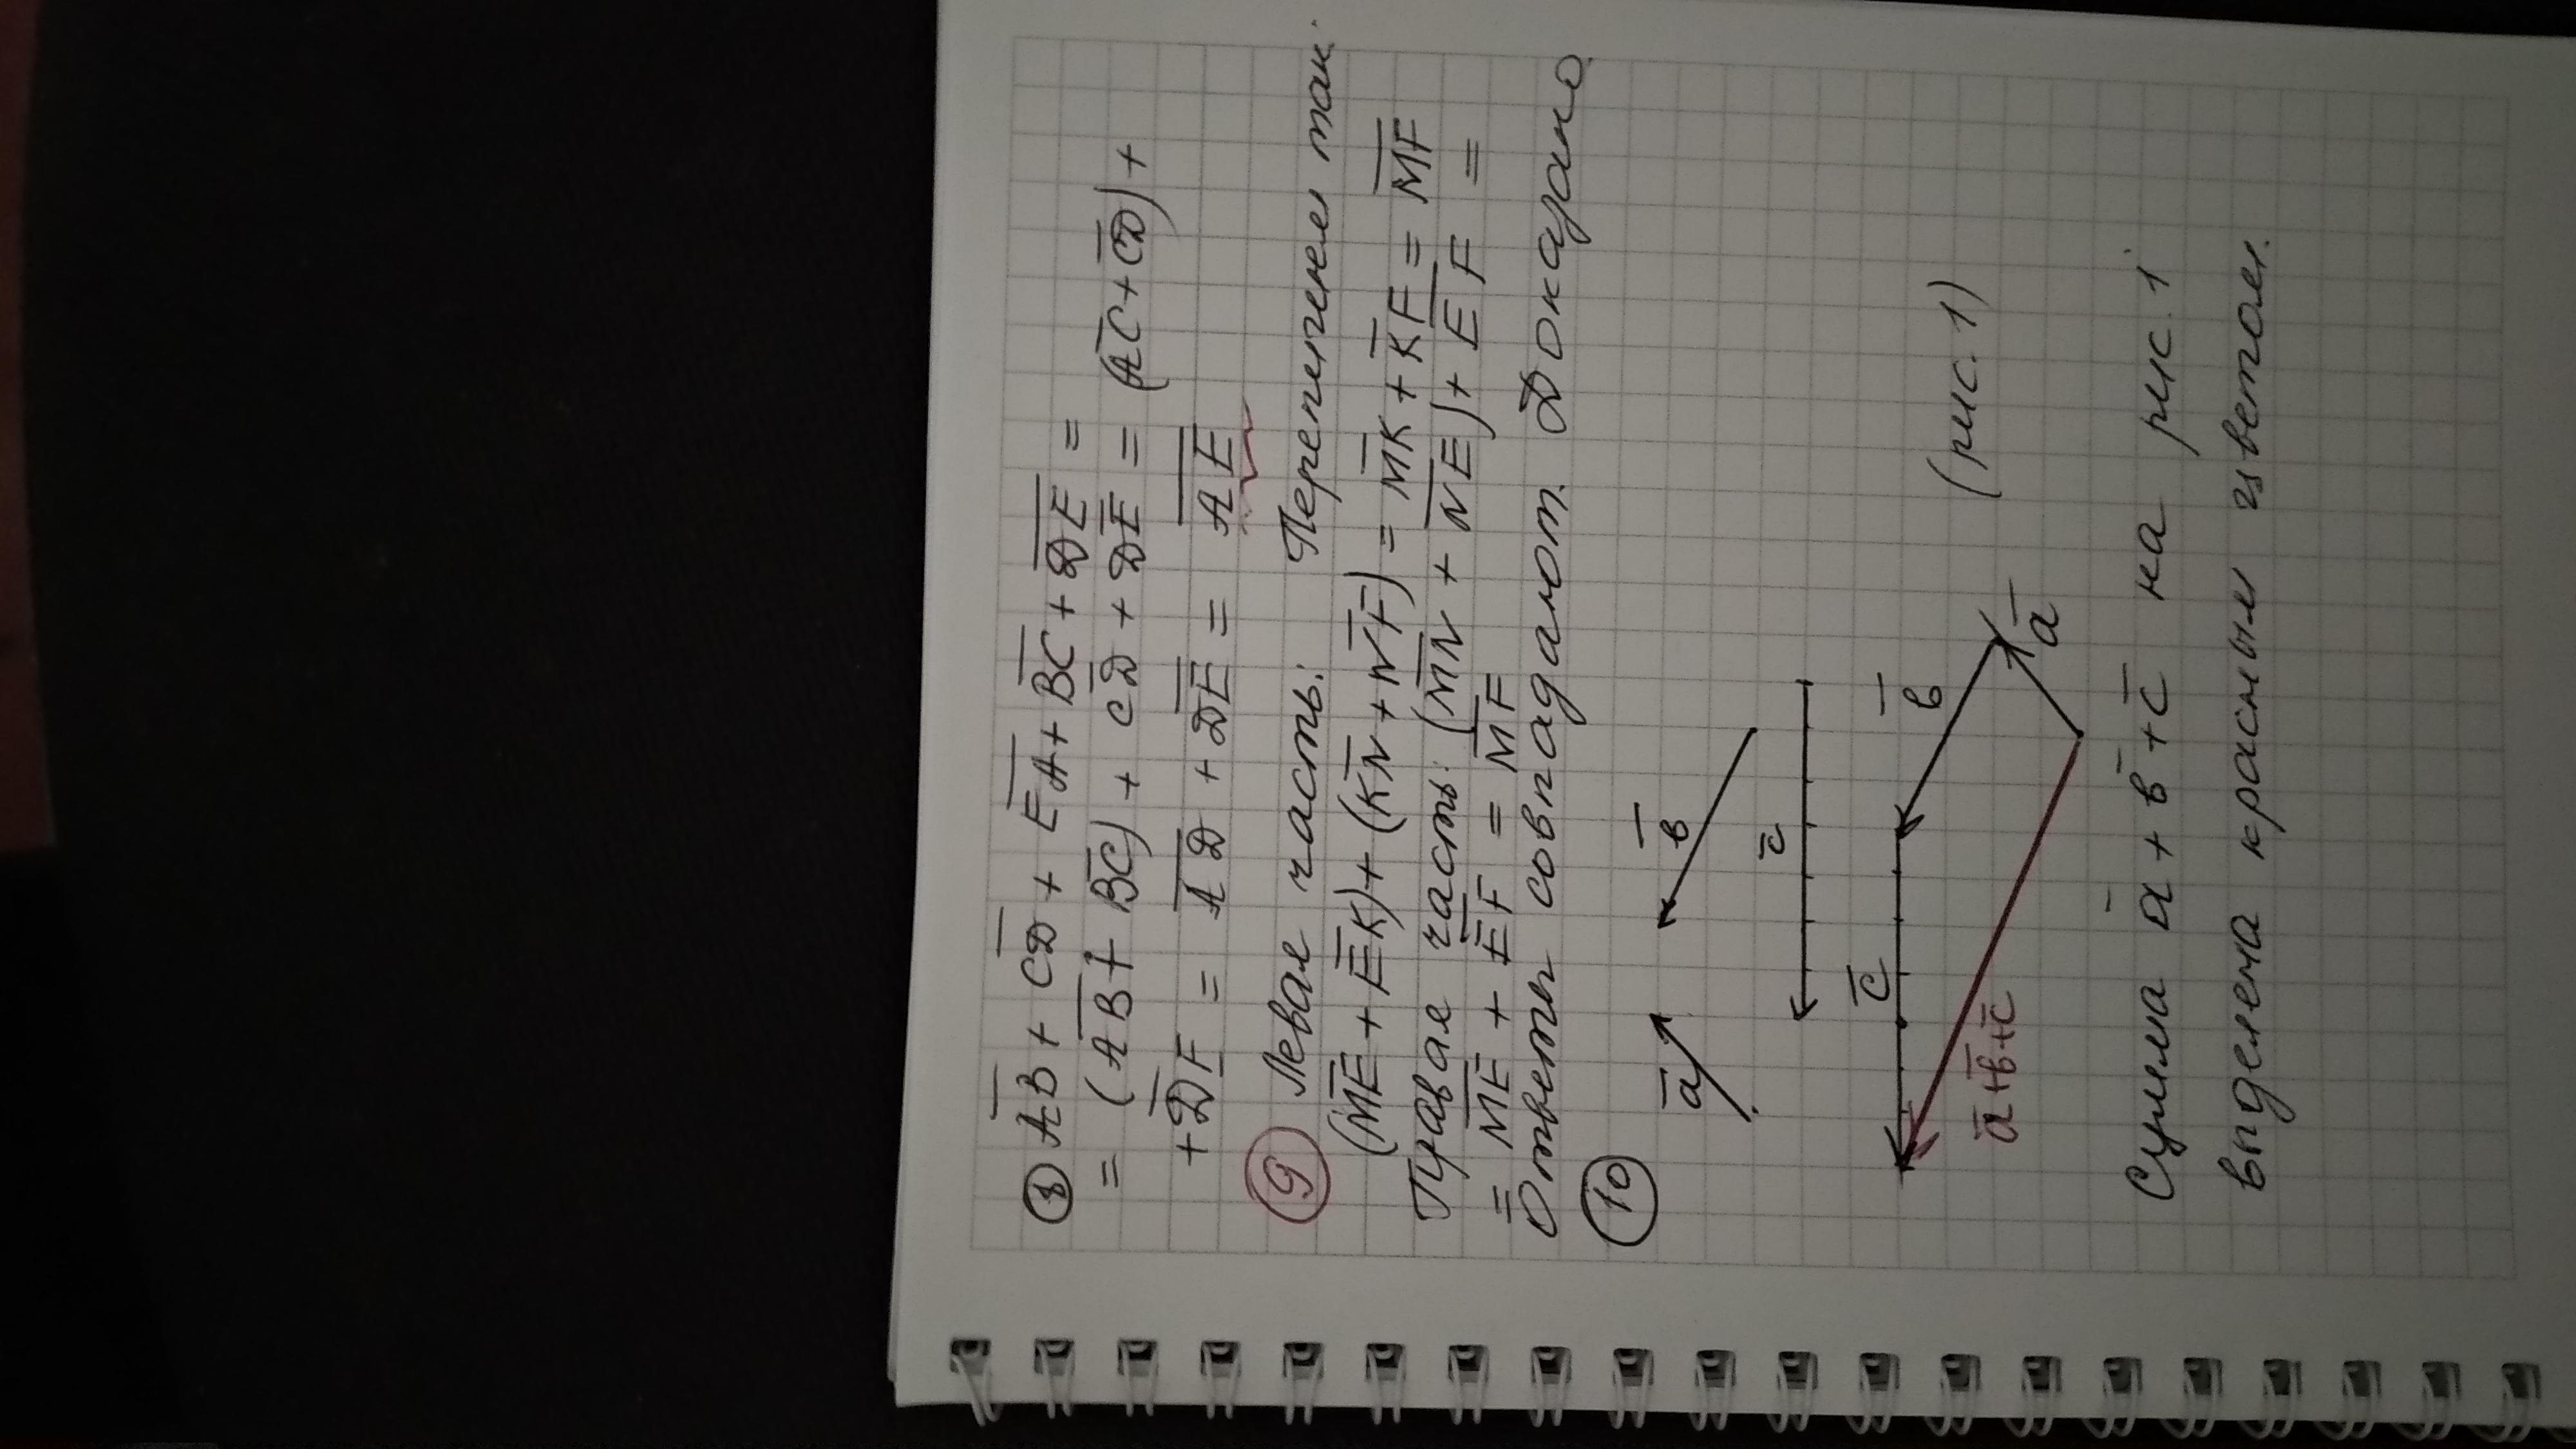 ⑧ A̅B̅ + C̅D̅ + E̅A̅ + B̅C̅ + D̅E̅ =
= (A̅B̅ + B̅C̅) + C̅D̅ + D̅E̅ = (A̅C̅ + C̅D̅) +
+ D̅E̅ = A̅D̅ + D̅E̅ = A̅E̅
⑨ Левая часть: Перепишем так:
(M̅E̅ + E̅K̅) + (K̅N̅ + N̅F̅) = M̅K̅ + K̅F̅ = M̅F̅
Правая часть: (M̅N̅ + N̅E̅) + E̅F̅ =
= M̅E̅ + E̅F̅ = M̅F̅
Ответы совпадают. Доказано.
⑩
a̅ в̅
c̅
c̅ в̅ (рис. 1)
a̅
a̅+в̅+c̅
Сумма a̅ + в̅ + c̅ на рис. 1
выделена красным цветом.